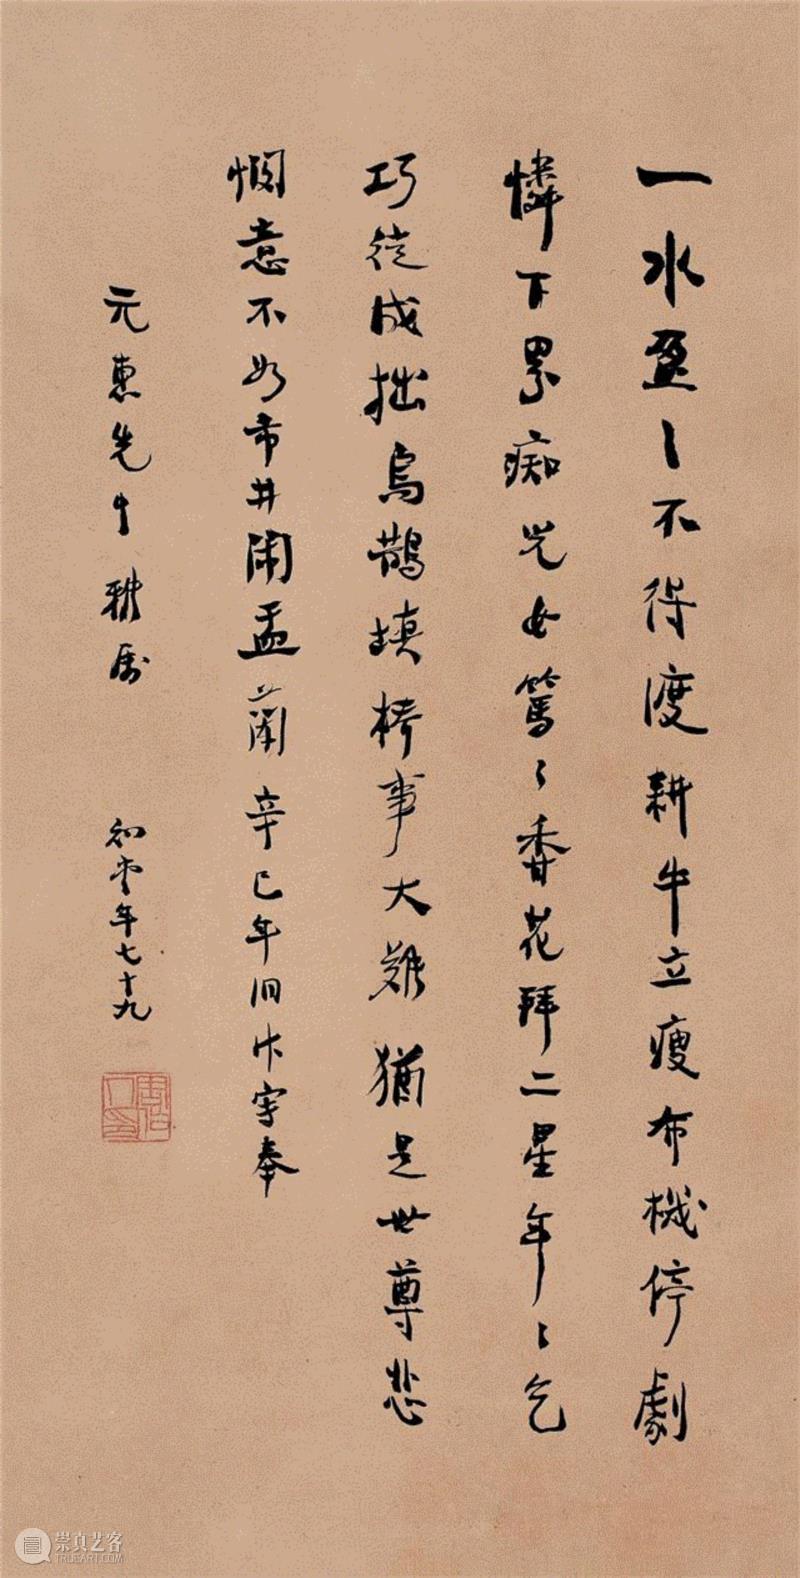 一水盈〻不得渡耕牛立瘦布機停劇
憐下界痴兒女篤〻香花拜二星年〻乞
巧徒成拙烏鵲填橋事大難猶是世尊悲
憫意不如市井閙盂蘭 辛巳年旧作字奉
元惠先生雅属
知堂年七十九
周作人印
崇真艺客
TRUEART.COM